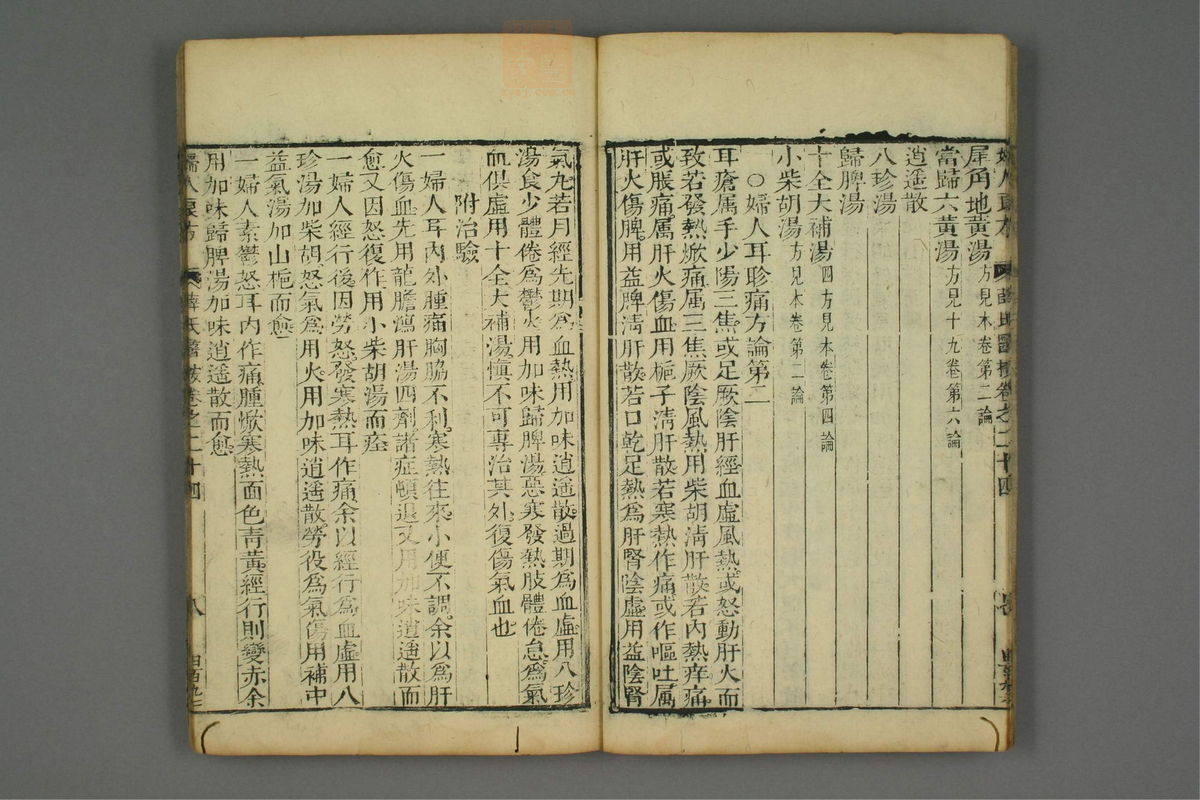 犀角地黃湯方見本卷第二論
當歸六黃湯方見十九卷第六論
逍遥散
八珍湯
歸脾湯
十全大補湯四方見本卷第四論
小柴胡湯方見本卷第二論
○婦人耳聤痛方論第二
耳瘡属手少陽三焦或足厥陰肝經血虛風熱或怒動肝火而
致若發熱焮痛属三焦厥陰風熱用柴胡清肝散若内熱痒痛
或脹痛属肝火傷血用梔子清肝散若寒熱作痛或作嘔吐属
肝火傷脾用益脾清肝散若口乾足熱爲肝腎陰虛用益陰腎
氣丸若月經先期爲血熱用加味逍遥散過期爲血虛用八珍
湯食少體倦爲鬱火用加味歸脾湯惡寒發熱肢體倦怠爲氣
血俱虛用十全大補湯愼不可專治其外復傷氣血也
附治驗
一婦人耳内外腫痛胸脇不利寒熱往來小便不調余以爲肝
火傷血先用龍膽瀉肝湯四劑諸症頓退又用加味逍遥散而
愈又因怒復作用小柴胡湯而痊
一婦人經行後因勞怒發寒熱耳作痛余以經行爲血虛用八
珍湯加柴胡怒氣爲用火用加味逍遥散勞役爲氣傷用補中
益氣湯加山梔而愈
一婦人素鬱怒耳内作痛腫焮寒熱面色靑黃經行則變赤余
用加味歸脾湯加味逍遥散而愈
婦人良方 薛氏醫按卷之二十四 八